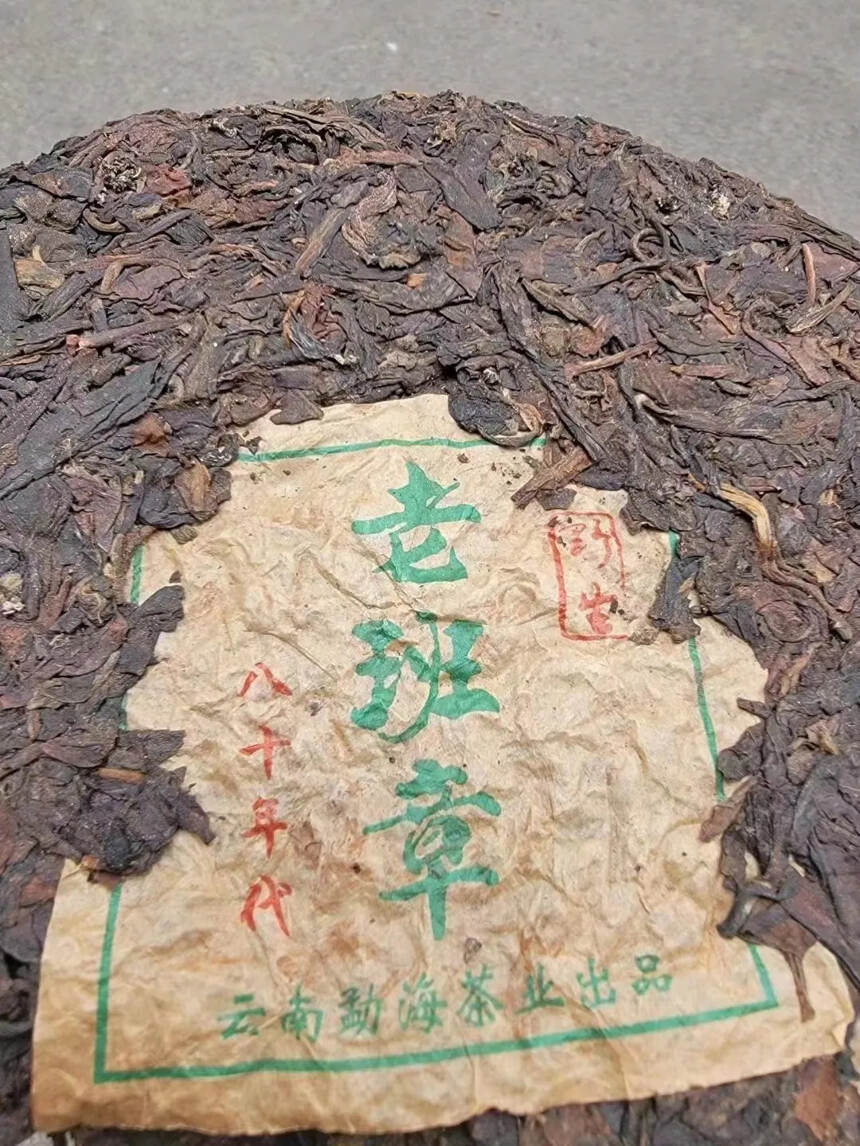 野生
老班章
八十年代
云南勐海茶业出品